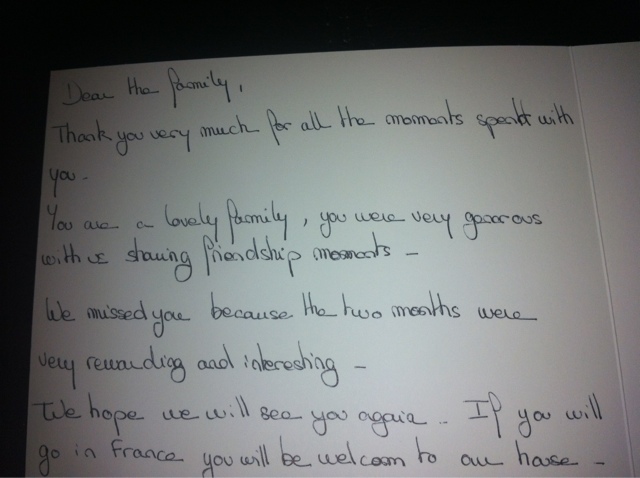 Dear the family,
Thank you very much for all the moments spent with
you -
You are a lovely family, you were very generous
with us sharing friendship moments -
We missed you because the two months were
very rewarding and interesting -
We hope we will see you again .. If you will
go in France you will be welcom to our house -